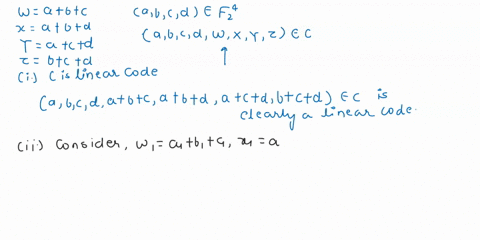 w = a+b+c (a,b,c,d) ∈ F₂⁴
x = a+b+d (a,b,c,d,w,x,Y,z) ∈ C
Y = a+c+d
z = b+c+d
(i) C is linear code
(a,b,c,d,a+b+c,a+b+d,a+c+d,b+c+d) ∈ C is
clearly a linear code.
(ii) Consider, w₁ = a₁+b₁+c₁, x₁ = a